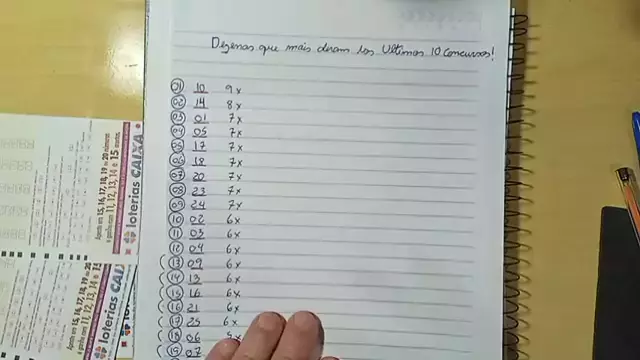 Dezenas que mais deram nos Ultimos 10 Concursos!
01 10 9x
02 14 8x
03 01 7x
04 05 7x
05 17 7x
06 18 7x
07 20 7x
08 23 7x
09 24 7x
10 02 6x
11 03 6x
12 04 6x
13 09 6x
14 13 6x
15 16 6x
16 21 6x
17 25 6x
18 06
19 07
Aposte em 15, 16, 17, 18, 19 ou 20 números
e ganhe com 11, 12, 13, 14 e 15
loterias CAIXA
Aposte em 15, 16, 17, 18, 19 ou 20
e ganhe com 11, 12, 13, 14 e 15
loterias